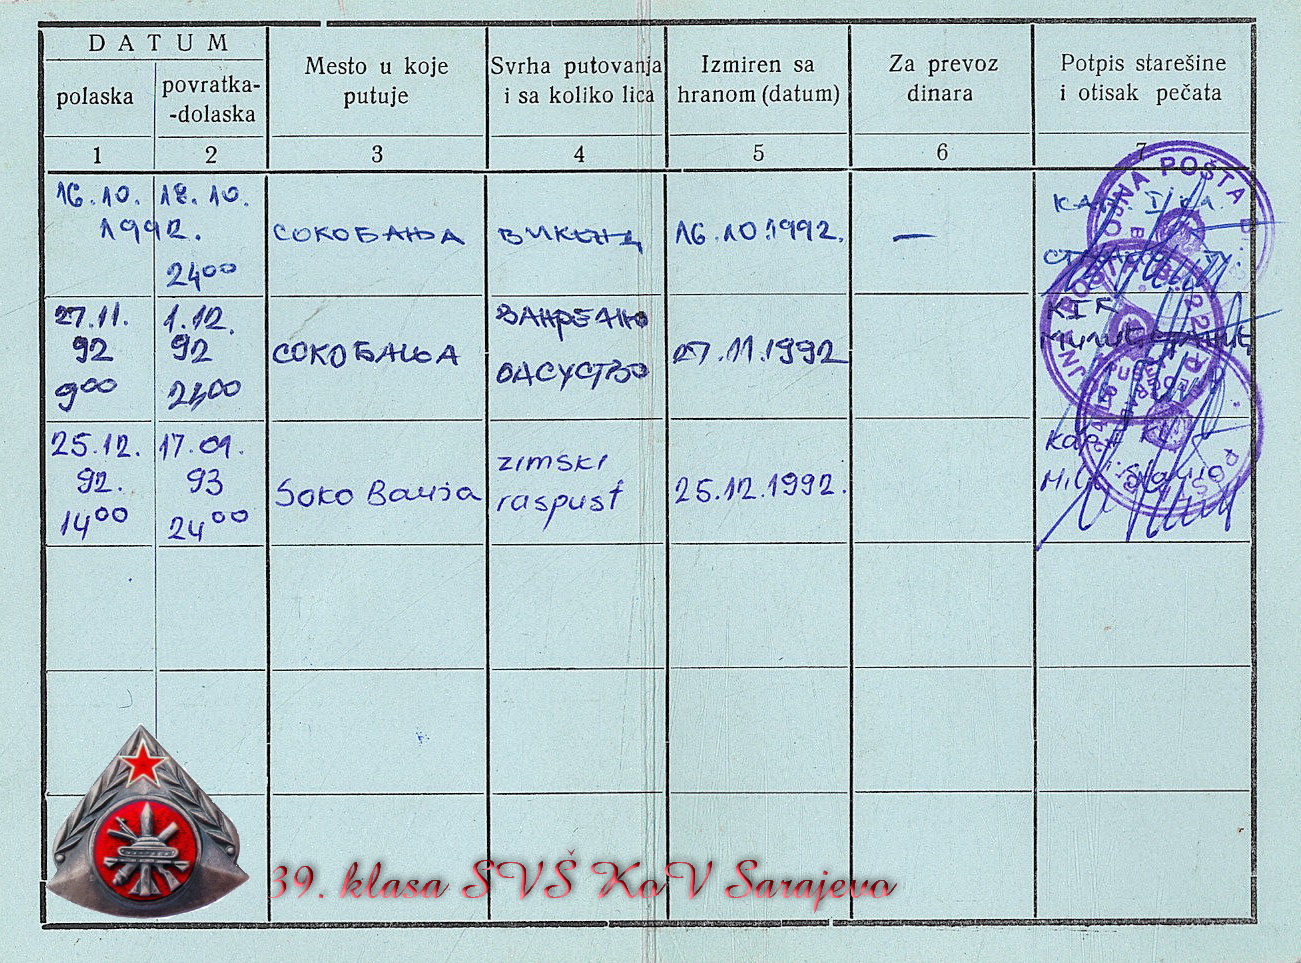 DATUM
polaska
povratka-
-dolaska
Mesto u koje
putuje
Svrha putovanja
i sa koliko lica
Izmiren sa
hranom (datum)
Za prevoz
dinara
Potpis starešine
i otisak pečata
1
2
3
4
5
6
7
16.10.
1992.
18.10.
24⁰⁰
СОКОБАЊА
ВИКЕНД
16.10.1992.
—
27.11.
92
9⁰⁰
1.12.
92
24⁰⁰
СОКОБАЊА
ВАНРЕДНО
ОДСУСТВО
27.11.1992
25.12.
92.
14⁰⁰
17.01.
93
24⁰⁰
Soko Banja
zimski
raspust
25.12.1992.
VOJNA POŠTA
39. klasa SVŠ KoV Sarajevo